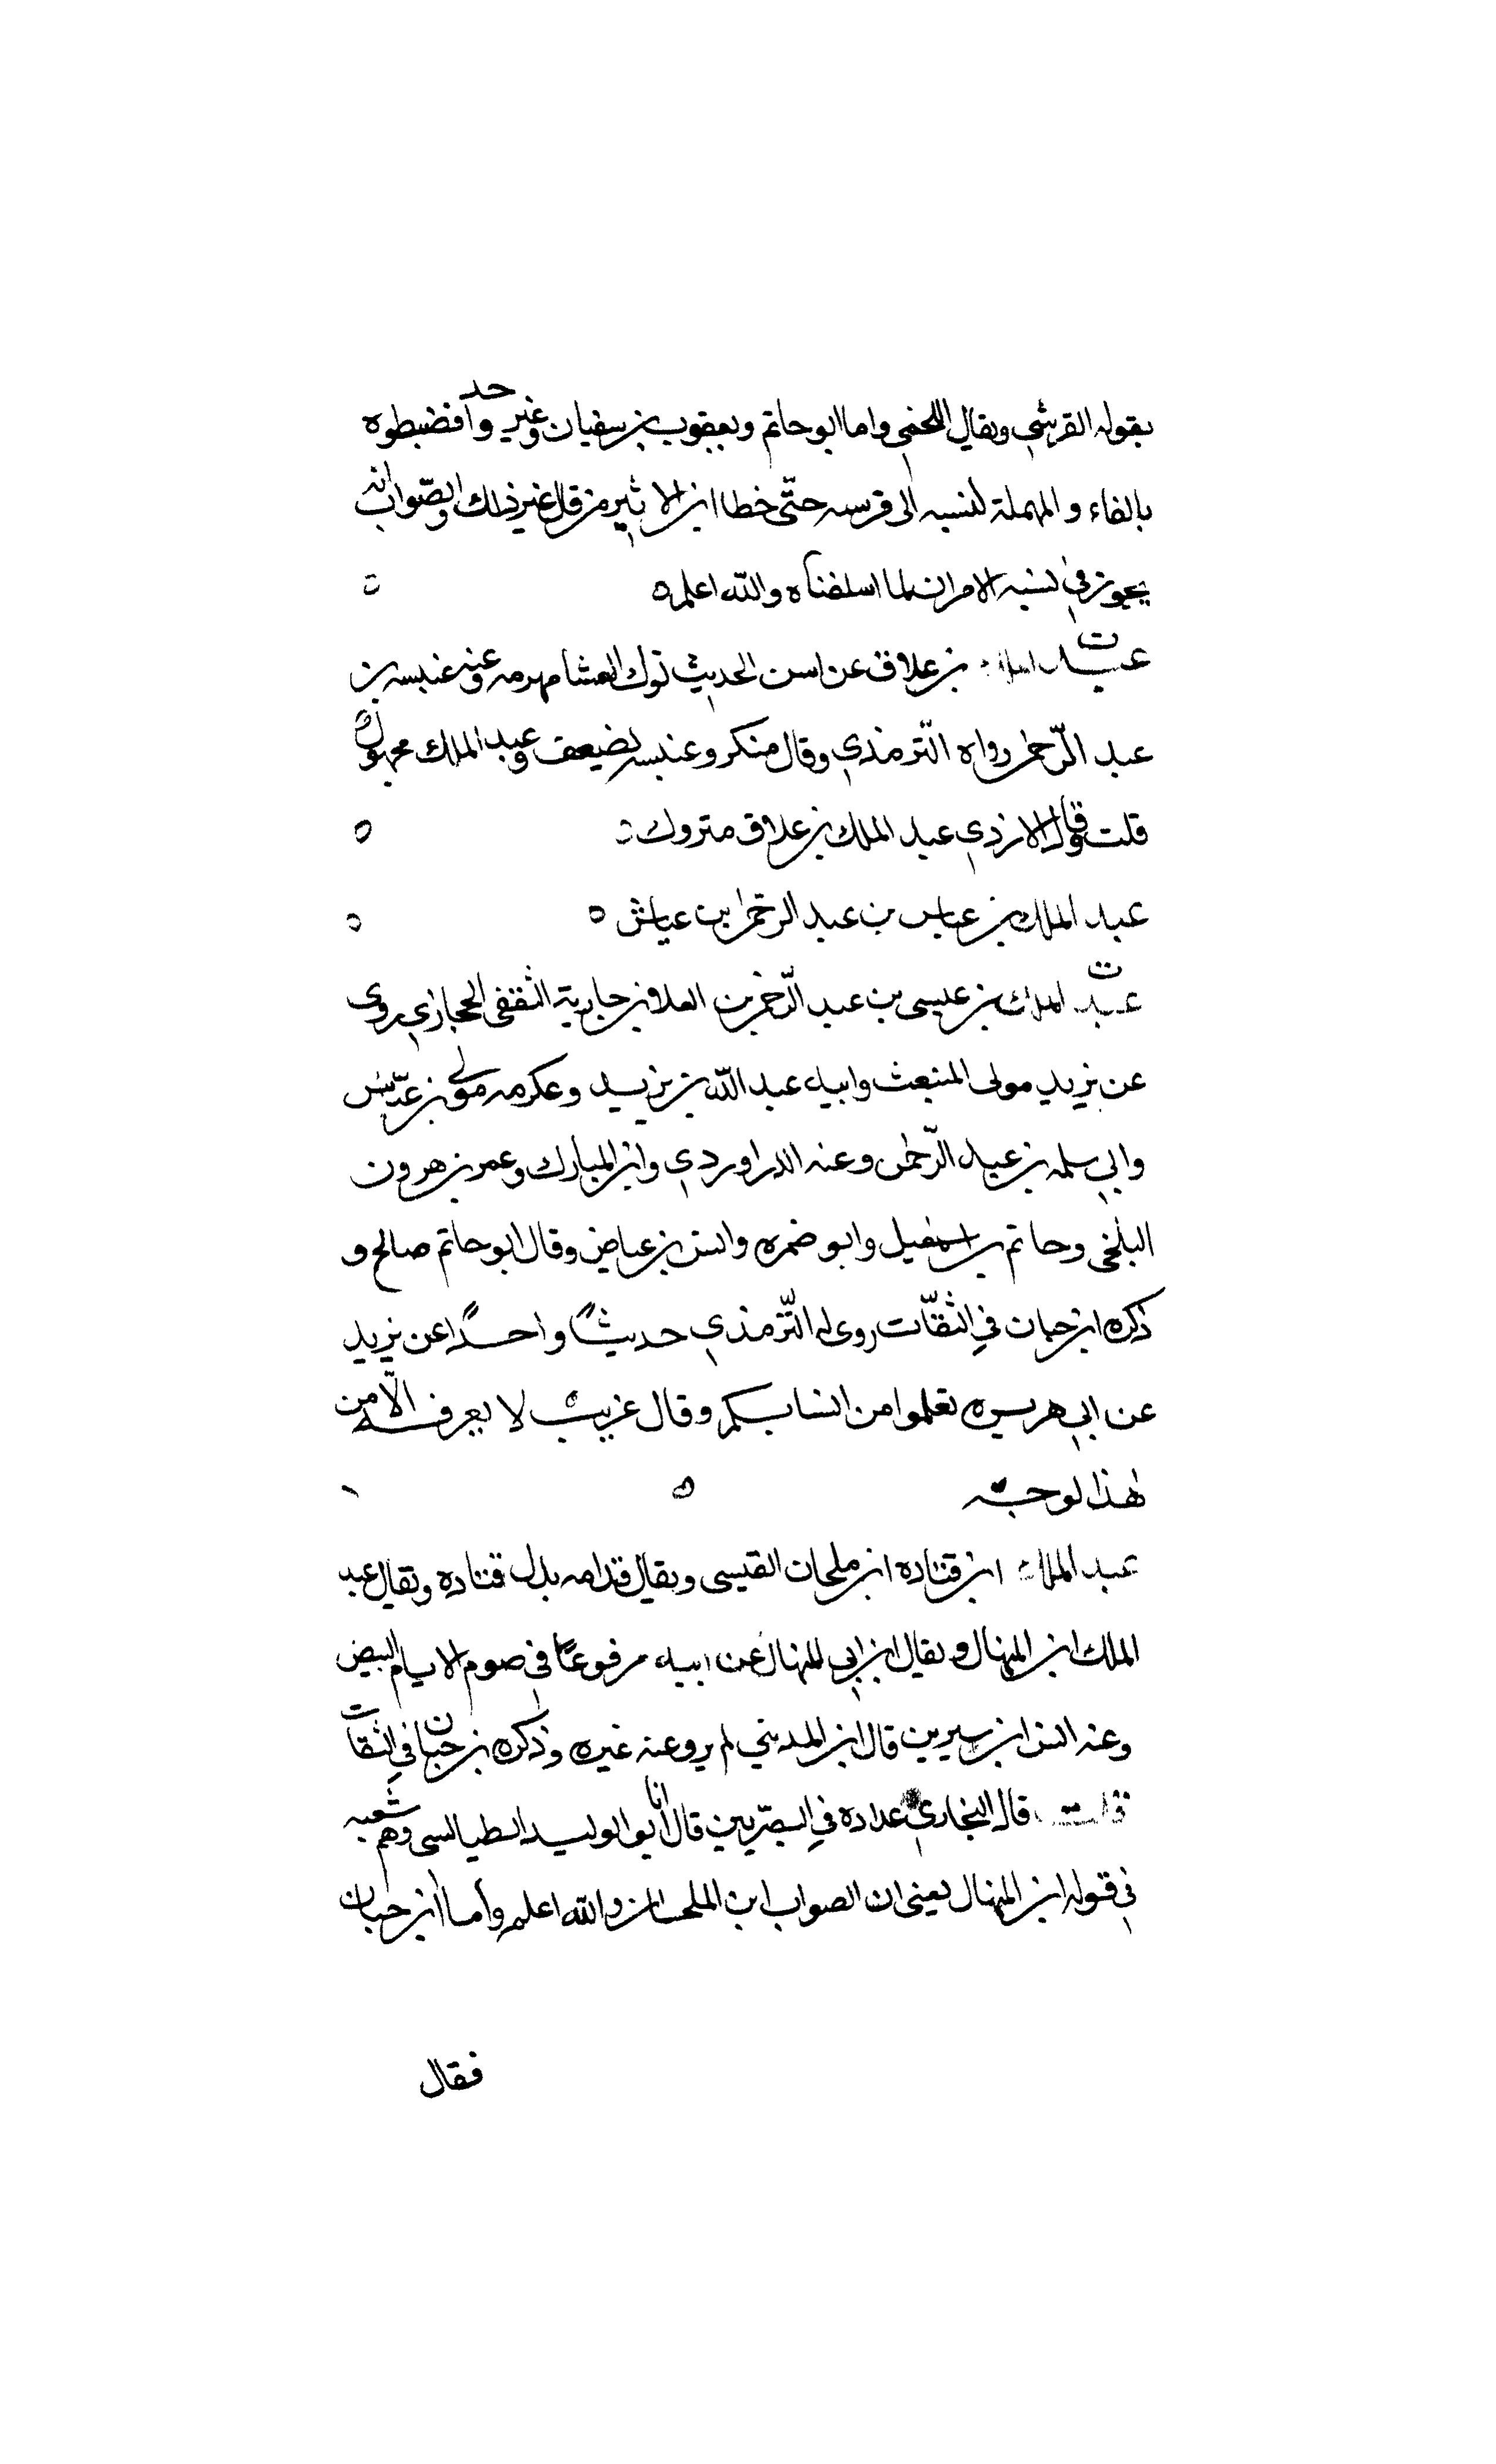 بقوله القرشي ويقال اللخمي واما ابو حاتم ويعقوب بن سفيان وغير واحد فضبطوه
بالفاء والمهملة لنسبه الى فرسه حتّى خطا ابن الاثير من قال غير ذلك والصّواب انه
يجوز في نسبه الامران لما اسلفناه والله اعلم ه
ت
عبد الملك بن علاق عن انس الحديث ترك العشا مهرمه وعنه عنبسه بن
عبد الرّحمن رواه التّرمذي وقال منكر وعنبسه يضعف وعبد الملك مجهول
قلت وقال الازدي عبد الملك بن علاق متروك
عبد الملك بن عباس بن عبد الرحمن بن عياش ه
ت
عبد الملك بن عيسى بن عبد الرّحمن بن العلا بن جارية الثقفي الحجازي روى
عن يزيد مولى المنبعث وابيه عبد الله بن يزيد وعكرمه مولى بن عبّاس
وابي سلمه بن عبد الرّحمن وعنه الدراوردي وابن المبارك وعمر بن هرون
البلخي وحاتم بن اسمعيل وابو ضمره وانس بن عياض وقال ابو حاتم صالح و
ذكره ابن حبان في الثقّات روى له التّرمذي حديثًا واحدًا عن يزيد
عن ابي هريره تعلموا من انسابكم وقال غريب لا يعرفه الّا من
هذا لوجه ه
عبد الملك ابن قتاده ابن ملحان القيسي ويقال قدامه بدل قتاده ويقال عبد
الملك ابن المنهال ويقال ابن ابي المنهال عن ابيه مرفوعًا في صوم الايام البيض
وعنه انس ابن سيرين قال ابن المديني لم يرو عنه غيره وذكره بن حبان في الثقات
قلت قال البخاري عداده في البصّريين قال انا ابو الوليد الطيالسي وهم شعبه
في قوله ابن المنهال يعني ان الصواب ابن الملحان والله اعلم وأما ابن حبان
فقال